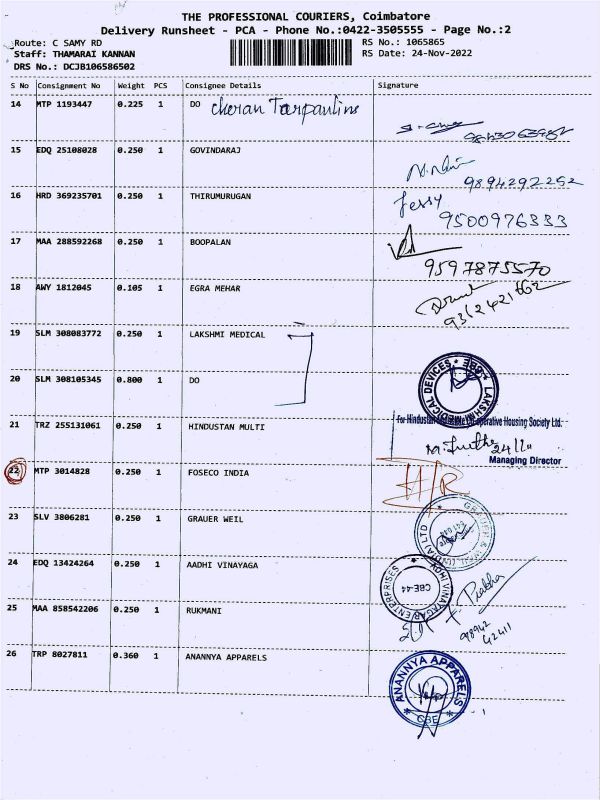 THE PROFESSIONAL COURIERS, Coimbatore
Delivery Runsheet - PCA - Phone No.:0422-3505555 - Page No.:2
Route: C SAMY RD
Staff: THAMARAI KANNAN
DRS No.: DCJB106586502
RS No.: 1065865
RS Date: 24-Nov-2022
S No Consignment No Weight PCS Consignee Details Signature
14 MTP 1193447 0.225 1 DO Cheran Tarpaulins
15 EDQ 25108028 0.250 1 GOVINDARAJ
9894292252
16 HRD 369235701 0.250 1 THIRUMURUGAN Jessy
9500976333
17 MAA 288592268 0.250 1 BOOPALAN
9597875570
18 AWY 1812045 0.105 1 EGRA MEHAR
9362421662
19 SLM 308083772 0.250 1 LAKSHMI MEDICAL
20 SLM 308105345 0.800 1 DO
LAKSHMI MEDICAL DEVICES * CBE *
21 TRZ 255131061 0.250 1 HINDUSTAN MULTI
For Hindustan Co-operative Housing Society Ltd.
24/11
Managing Director
22 MTP 3014828 0.250 1 FOSECO INDIA H/R
23 SLV 3806281 0.250 1 GRAUER WEIL
GRAUER & WEIL (INDIA) LTD
24 EDQ 13424264 0.250 1 AADHI VINAYAGA
AADHI VINAYAGAR ENTERPRISES
CBE-44
25 MAA 858542206 0.250 1 RUKMANI
98942
42411
26 TRP 8027811 0.360 1 ANANNYA APPARELS
ANANNYA APPARELS
* CBE *